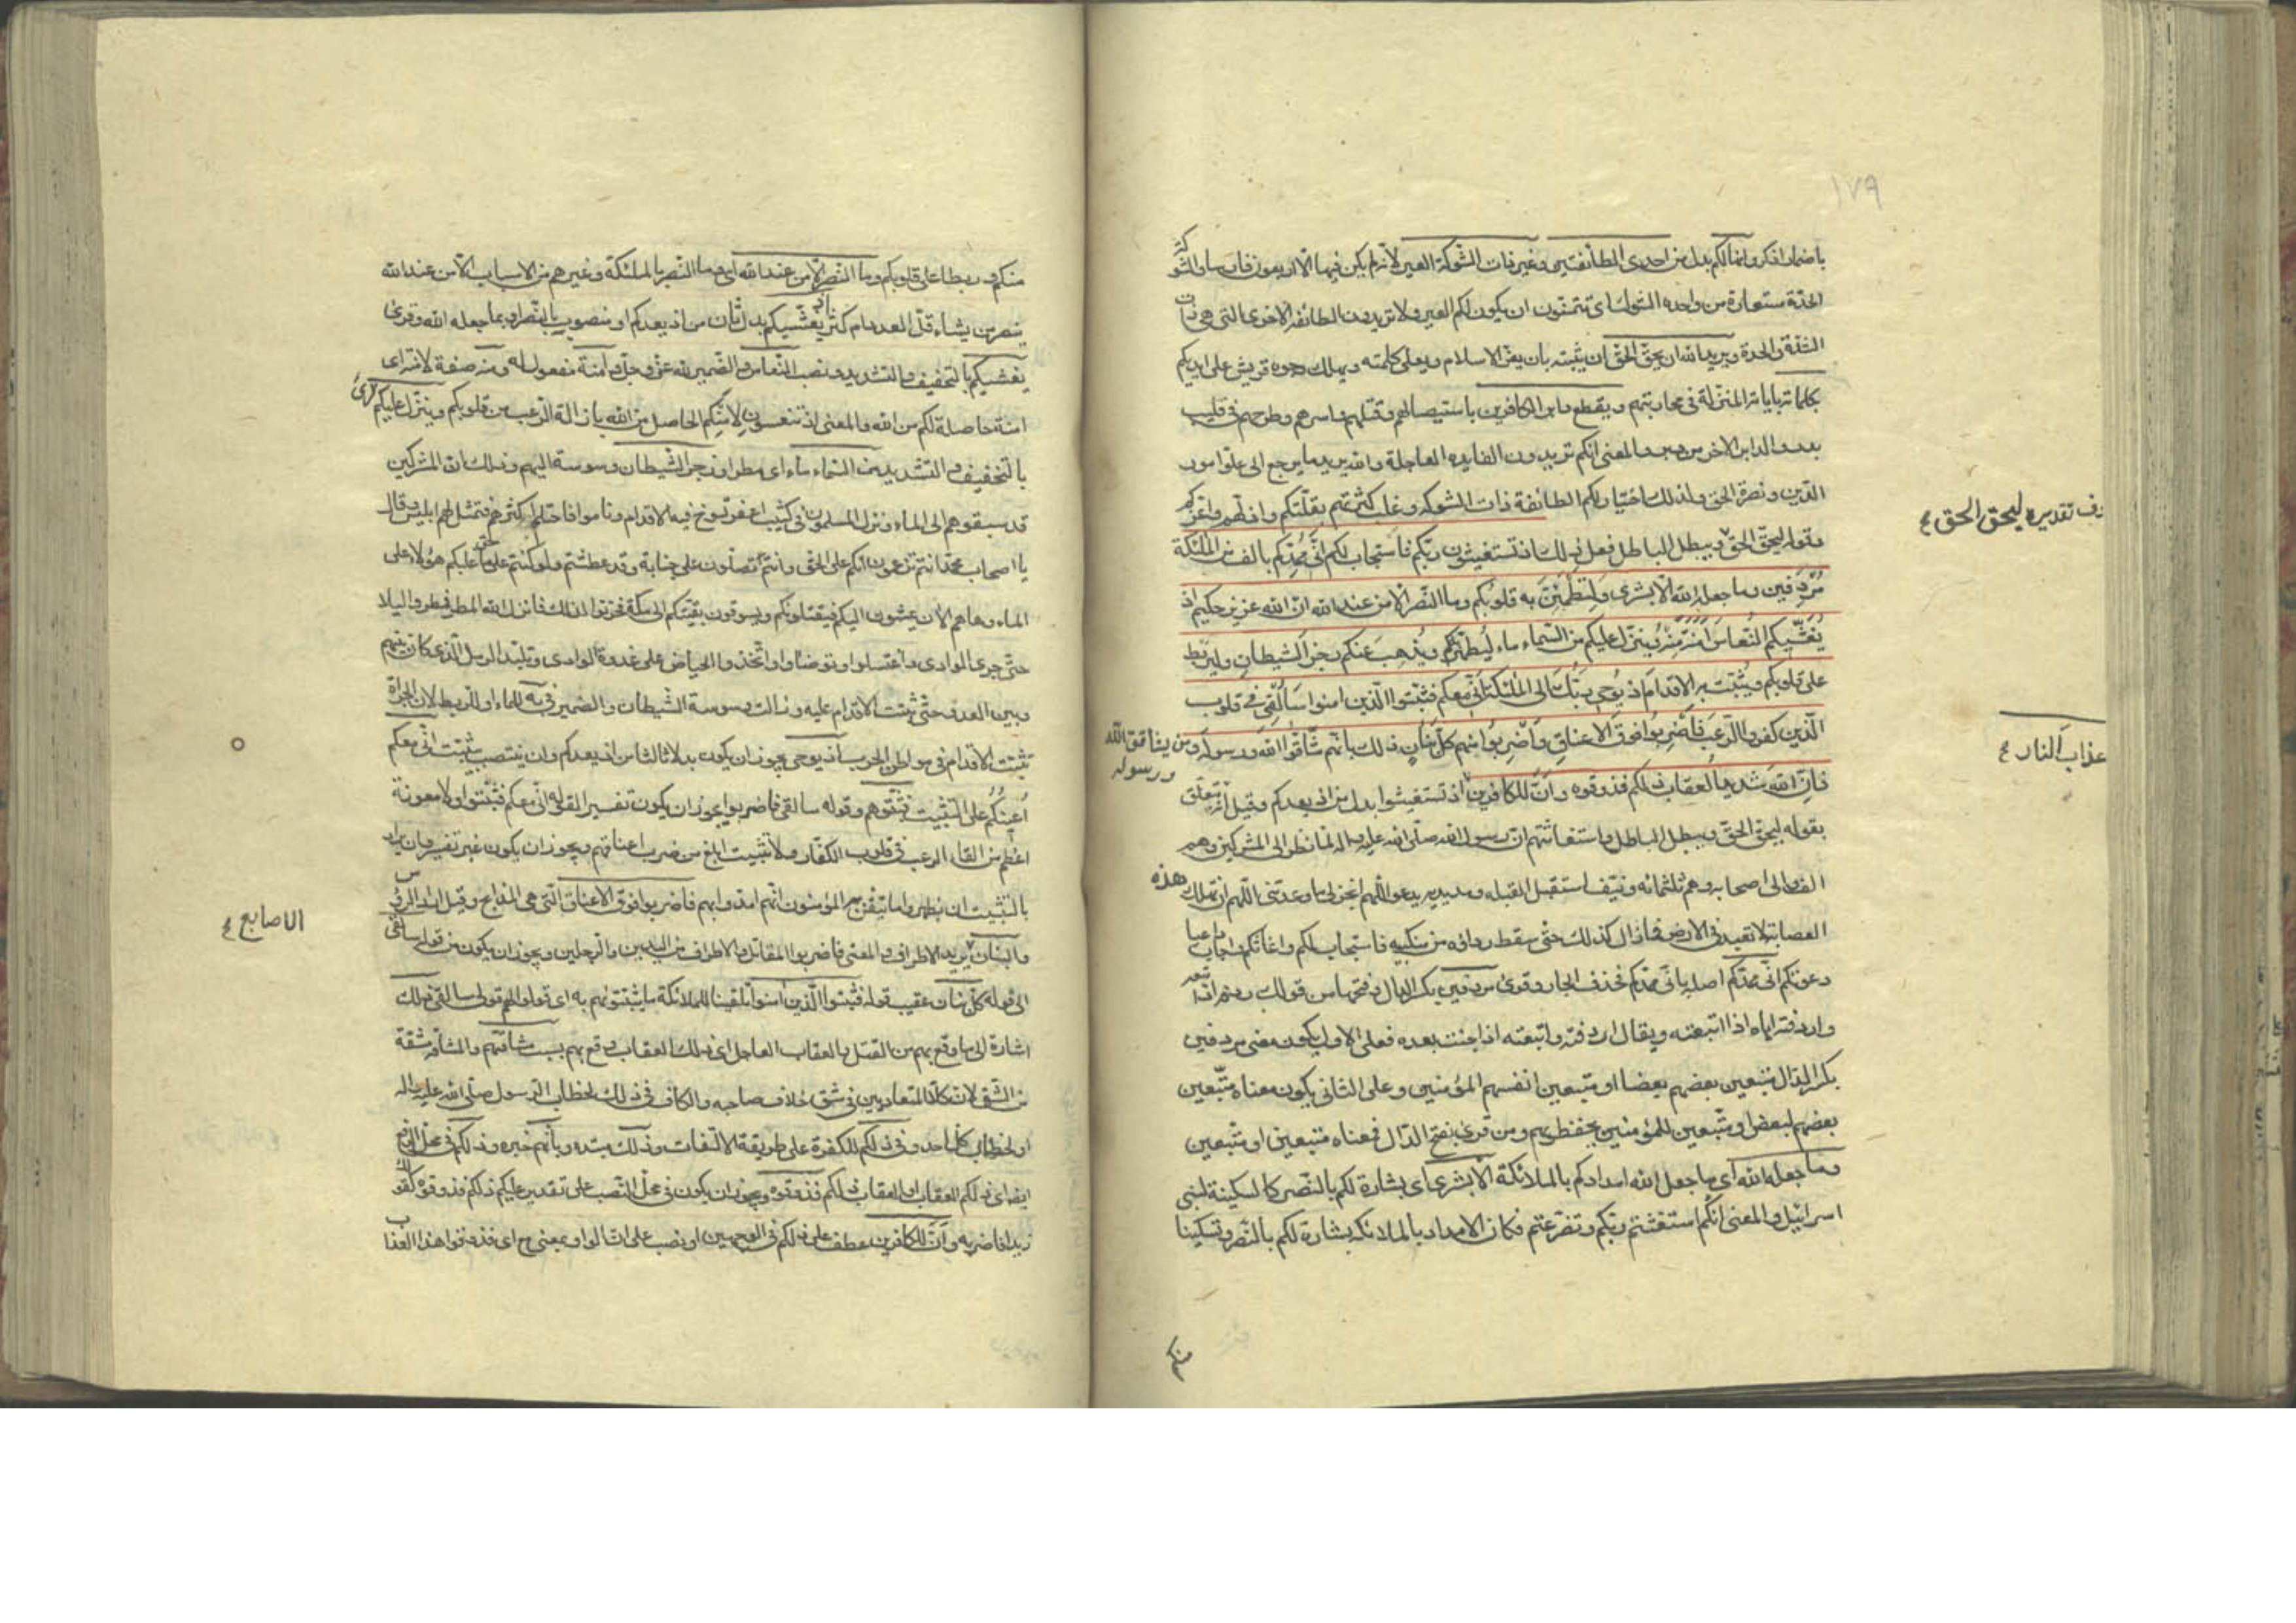 ١٧٩
باضمار اذكر وانها لكم بدل من احدى الطائفتين وغير ذات الشوكة العير لانه لم يكن فيها الا اربعون فارسا والشوكة
الحدة مستعارة من واحدة الشوك اى تتمنون ان يكون لكم العير ولا تريدون الطائفة الاخرى التى هى ذات
الشدة والحدة ويريد الله ان يحق الحق ان يثبته بان يعز الاسلام ويعلى كلمته ويهلك وجوه قريش على ايديكم
بكلماته باياته المنزلة فى محاربتهم ويقطع دابر الكافرين باستيصالهم وقتلهم واسرهم وطرحهم فى قليب
بدر والدابر الاخر من دبر والمعنى انكم تريدون الفايدة العاجلة والله يريد ما يرجع الى علو امور
الدين ونصرة الحق ولذلك اختار لكم الطائفة ذات الشوكة وغلب كثرتهم بقلتكم واذلهم واعزكم
وقوله ليحق الحق ويبطل الباطل فعل ذلك اذ تستغيثون ربكم فاستجاب لكم انى ممدكم بالف من الملئكة
مردفين وما جعله الله الا بشرى ولتطمئن به قلوبكم وما النصر الا من عند الله ان الله عزيز حكيم اذ
يغشيكم النعاس امنة منه وينزل عليكم من السماء ماء ليطهركم به ويذهب عنكم رجز الشيطان وليربط
على قلوبكم ويثبت به الاقدام اذ يوحى ربك الى الملئكة انى معكم فثبتوا الذين امنوا سالقى فى قلوب
الذين كفروا الرعب فاضربوا فوق الاعناق واضربوا منهم كل بنان ذلك بانهم شاقوا الله ورسوله ومن يشاقق الله
ورسوله
فان الله شديد العقاب ذلكم فذوقوه وان للكافرين اذ تستغيثوا بدل من اذ يعدكم وقيل انه يتعلق
بقوله ليحق الحق ويبطل الباطل واستغاثتهم ان رسول الله صلى الله عليه واله لما نظر الى المشركين وهم
الف والى اصحابه وهم ثلثمائة ونيف استقبل القبلة ومد يديه يدعو اللهم انجز لى ما وعدتنى اللهم ان تهلك هذه
العصابة لا تعبد فى الارض فما زال كذلك حتى سقط رداؤه من منكبيه فاستجاب لكم واغاثكم
دعوتكم انى ممدكم اصله بانى ممدكم فحذف الجار وقرئ مردفين بكسر الدال وفتحها من قولك ردفه اذا تبعه
واردفته اياه اذا اتبعته ويقال اردفته واتبعته اذا جئت بعده فعلى الاول يكون معنى مردفين
بكسر الدال متبعين بعضهم بعضا او متبعين انفسهم المؤمنين وعلى الثانى يكون معناه متبعين
بعضهم لبعض او متبعين للمؤمنين يحفظونهم ومن قرئ بفتح الدال فمعناه متبعين او متبعين
وما جعله الله اى ما جعل الله امدادكم بالملائكة الا بشرى اى بشارة لكم بالنصر كالسكينة لبنى
اسرائيل والمعنى انكم استغثتم ربكم وتضرعتم فكان الامداد بالملائكة بشارة لكم بالنصر وتسكينا
منكم
تقديره ليحق الحق
عذاب النار
منكم وربطا على قلوبكم وما النصر الا من عند الله اى وما النصر بالملئكة وغيرهم من الاسباب الا من عند الله
ينصر من يشاء قل العدد ام كثر اذ يغشيكم بدل ثان من اذ يعدكم او منصوب بالنصر او بما جعله الله وقرئ
يغشيكم بالتخفيف والتشديد ونصب النعاس والضمير لله عز وجل وامنة مفعول له ومنه صفة لامنة اى
امنة حاصلة لكم من الله والمعنى اذ تنعسون لامنكم الحاصل من الله بازالة الرعب من قلوبكم وينزل عليكم قرئ
بالتخفيف والتشديد من السماء ماء اى مطرا ورجز الشيطان وسوسة اليهم وذلك ان المشركين
قد سبقوهم الى الماء ونزل المسلمون فى كثيب اعفر تسوخ فيه الاقدام وناموا فاحتلم اكثرهم فتمثل لهم ابليس وقال
يا اصحاب محمد انتم تزعمون انكم على الحق وانتم تصلون على جنابة وقد عطشتم ولو كنتم على حق ما غلبكم هؤلاء على
الماء وها هم الان يمشون اليكم فيقتلونكم ويسوقون بقيتكم الى مكة فحزنوا لذلك فانزل الله المطر فمطروا ليلا
حتى جرى الوادى واغتسلوا وتوضاوا واتخذوا الحياض على عدوة الوادى وتلبد الرمل الذى كان بينهم
وبين العدو حتى ثبتت الاقدام عليه وزالت وسوسة الشيطان والضمير فى به للماء او للربط لان الجراة
تثبت الاقدام فى مواطن الحرب اذ يوحى يجوز ان يكون بدلا ثالثا من اذ يعدكم وان ينتصب بيثبت انى معكم
اعينكم على التثبيت فثبتوهم وقوله سالقى فاضربوا يجوز ان يكون تفسيرا لقوله انى معكم فثبتوا ولا معونة
اعظم من القاء الرعب فى قلوب الكفار ولا تثبيت ابلغ من ضرب اعناقهم ويجوز ان يكون غير تفسير وان يراد
بالتثبيت ان يظهروا ما يتيقن به المؤمنون انهم امدوا بهم فاضربوا فوق الاعناق التى هى المذابح وقيل اراد الرؤس
والبنان يريد الاطراف والمعنى فاضربوا المقاتل والاطراف من اليدين والرجلين ويجوز ان يكون من قوله سالقى
الى قوله كل بنان عقيب قوله فثبتوا الذين امنوا تلقينا للملائكة ما يثبتونهم به اى قولوا لهم قولى سالقى ذلك
اشارة الى ما وقع بهم من القتل والعقاب العاجل اى ذلك العقاب وقع بهم بسبب مشاقتهم والمشاقة مشتقة
من الشق لان كلا المتعاديين فى شق خلاف صاحبه والكاف فى ذلك لخطاب الرسول صلى الله عليه واله
او لخطاب كل احد وفى ذلكم للكفرة على طريقة الالتفات وذلك مبتدا وبانهم خبره وذلكم فى محل الرفع
ايضا اى ذلكم العقاب او العقاب ذلكم فذوقوه ويجوز ان يكون فى محل النصب على تقدير عليكم ذلكم فذوقوه كقولك
زيدا فاضربه وان للكافرين عطف على ذلكم فى الوجهين او نصب على ان الواو بمعنى مع اى فذوقوا هذا العذاب
الاصابع